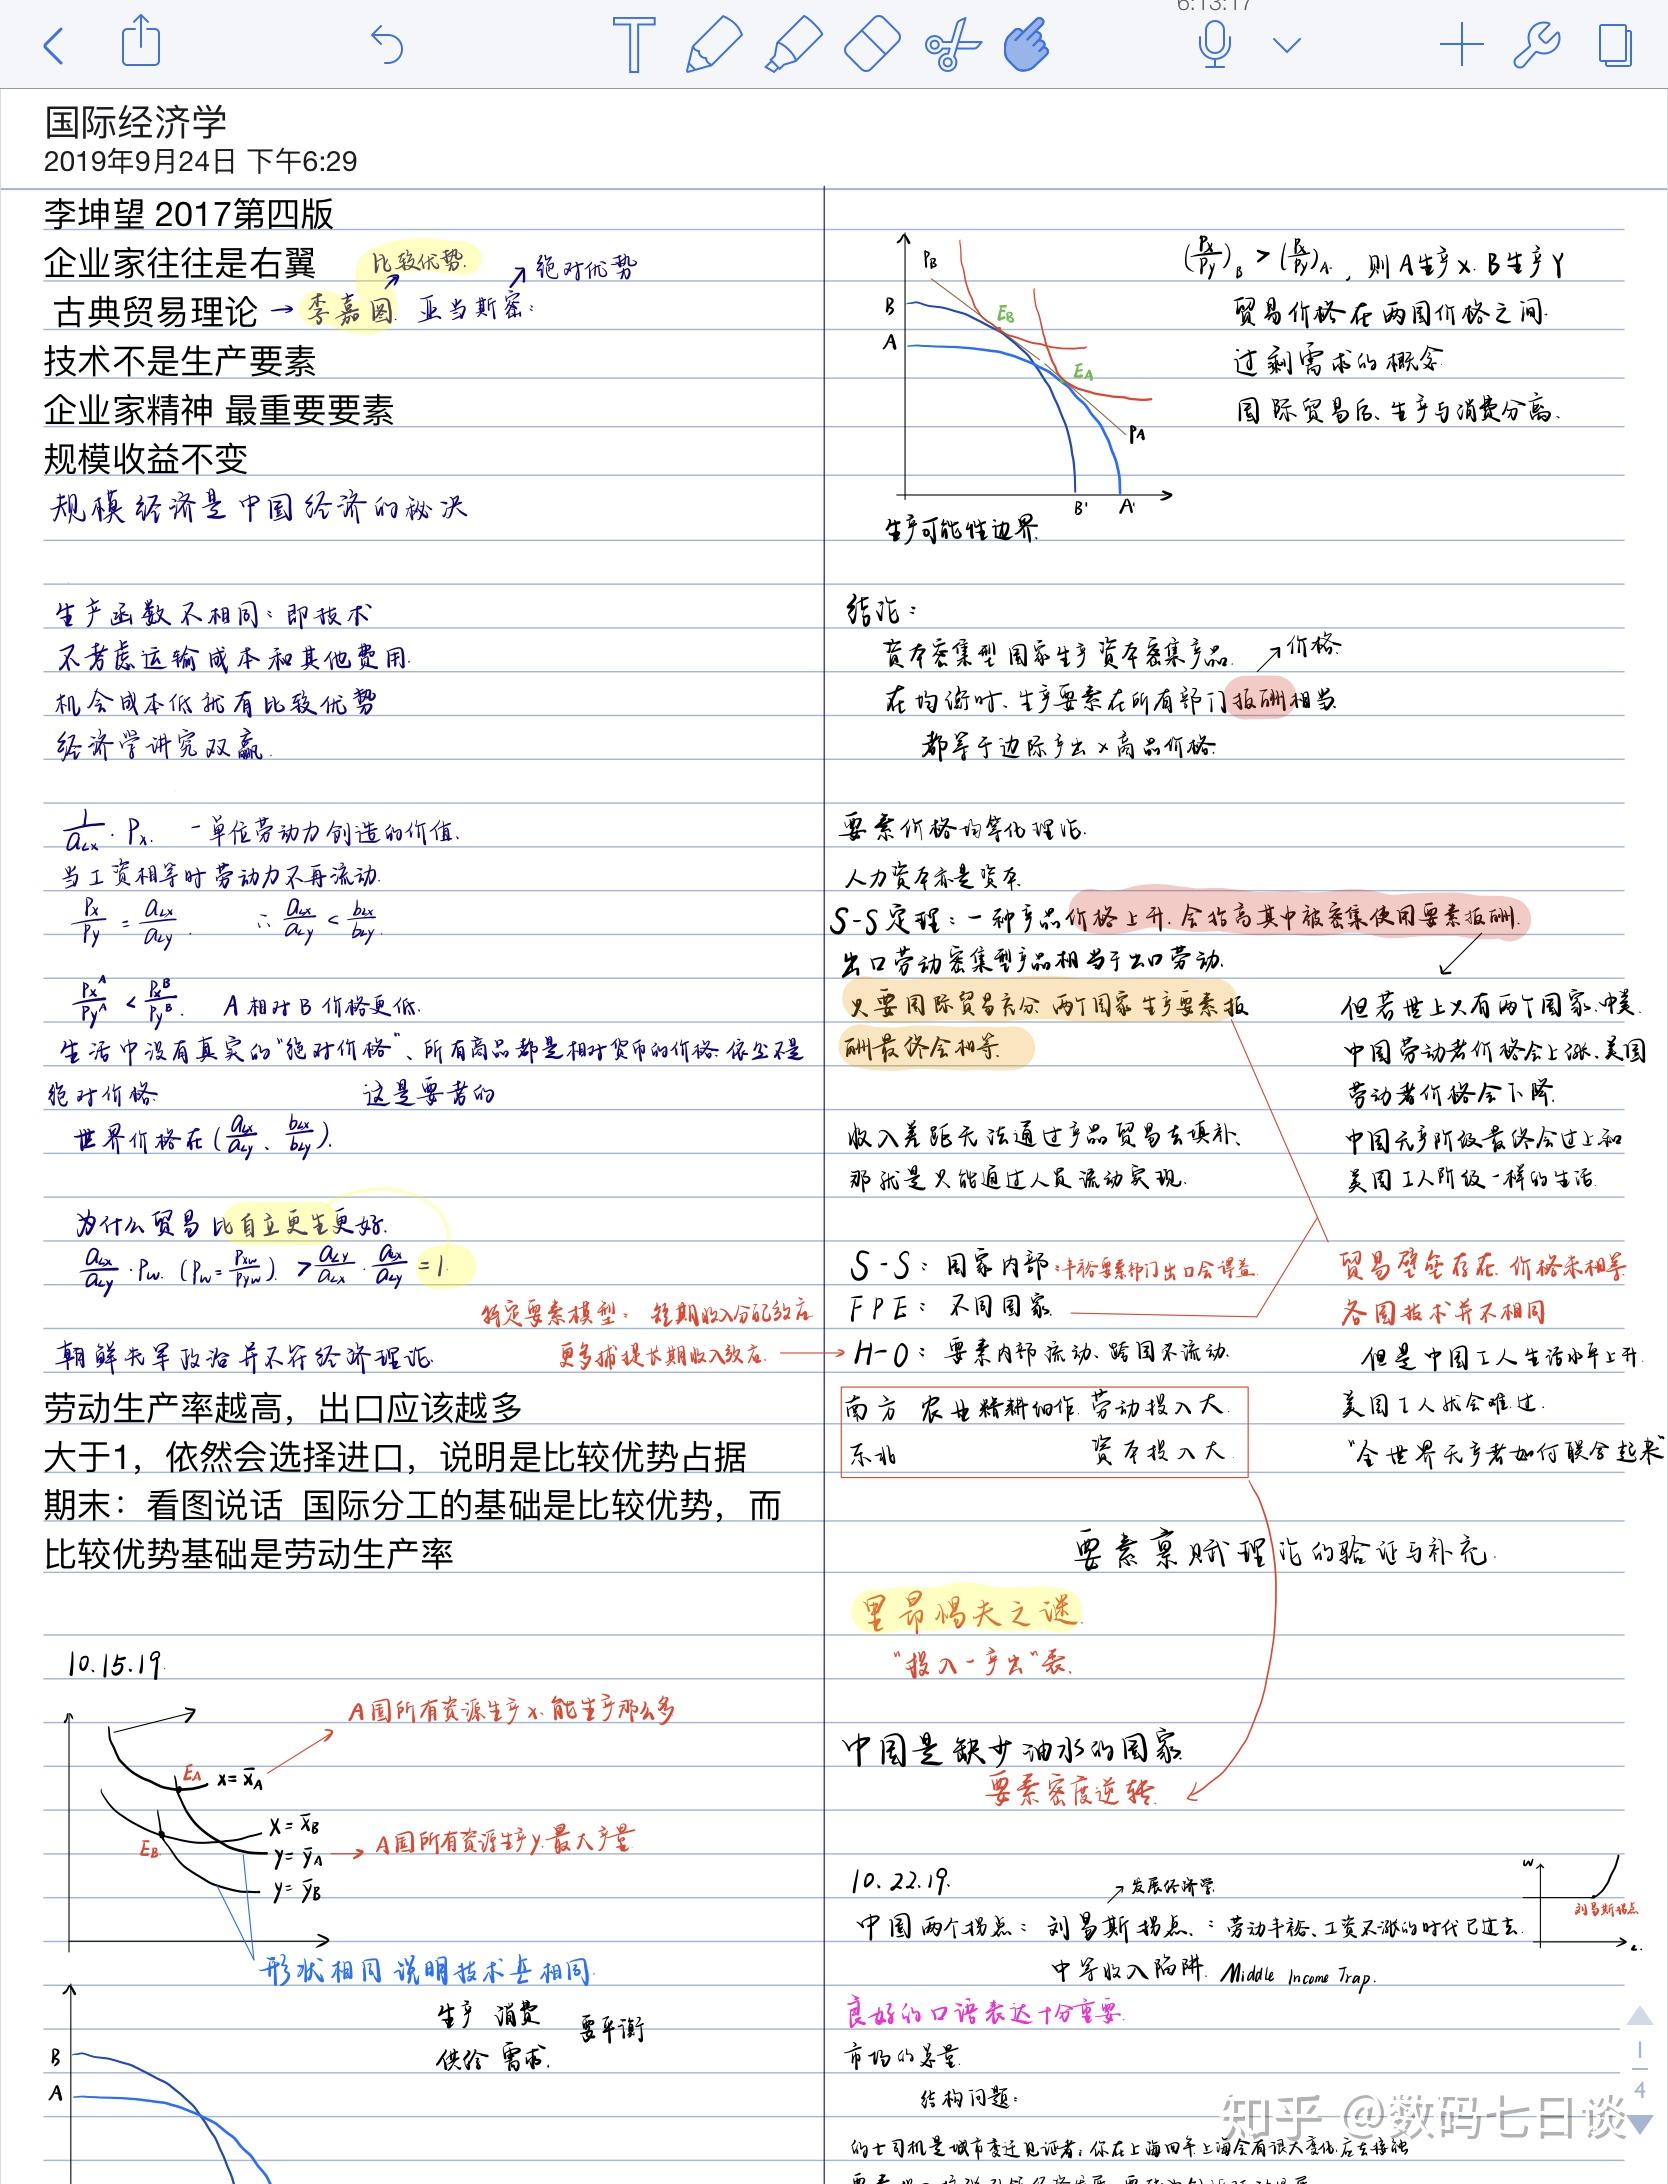 6:13:17
国际经济学
2019年9月24日 下午6:29
李坤望 2017第四版
企业家往往是右翼
比较优势.
绝对优势
古典贸易理论 → 李嘉图. 亚当斯密:
技术不是生产要素
企业家精神 最重要要素
规模收益不变
规模经济是中国经济的秘决
生产函数不相同：即技术
不考虑运输成本和其他费用.
机会成本低就有比较优势
经济学讲究双赢.
1/aLx · Px. 一单位劳动力创造的价值.
当工资相等时劳动力不再流动.
Px/Py = aLx/aLy. ∴ aLx/aLy < bLx/bLy.
Px^A/Py^A < Px^B/Py^B. A相对B价格更低.
生活中没有真实的"绝对价格"、所有商品都是相对货币的价格.
绝对价格 这是要考的
世界价格在(aLx/aLy、bLx/bLy).
为什么贸易比自立更生更好.
aLx/aLy · Pw. (Pw = Pxw/Pyw). > aLy/aLx · aLx/aLy = 1.
特定要素模型： 短期收入分配效应
朝鲜先军政治并不符经济理论.
更多捕捉长期收入效应. →
劳动生产率越高，出口应该越多
大于1，依然会选择进口，说明是比较优势占据
期末：看图说话 国际分工的基础是比较优势，而
比较优势基础是劳动生产率
10.15.19.
A国所有资源生产x.能生产那么多
EA x=x̄A
x=x̄B
EB
y=ȳA → A国所有资源生产y.最大产量
y=ȳB
形状相同说明技术是相同.
生产 消费
要平衡
供给 需求.
B
A
PB
B
EB
A
EA
PA
B' A'
生产可能性边界.
(Px/Py)B > (Px/Py)A，则A生产x. B生产Y
贸易价格在两国价格之间.
过剩需求的概念
国际贸易后、生产与消费分离.
结论：
资本密集型国家生产资本密集产品. 价格.
在均衡时、生产要素在所有部门报酬相当.
都等于边际产出×商品价格.
要素价格均等化理论.
人力资本亦是资本.
S-S定理：一种产品价格上升.会抬高其中被密集使用要素报酬.
出口劳动密集型产品相当于出口劳动.
只要国际贸易充分.两个国家生产要素报
酬最终会相等.
但若世上只有两个国家.中美.
中国劳动者价格会上涨、美国
劳动者价格会下降.
中国无产阶级最终会过上和
美国工人阶级一样的生活
收入差距无法通过产品贸易去填补、
那就是只能通过人员流动实现.
S-S：国家内部：丰裕要素部门出口会得益.
FPE：不同国家.
H-O：要素内部流动、跨国不流动.
贸易壁垒存在.价格未相等
各国技术并不相同
但是中国工人生活水平上升.
美国工人就会难过.
"全世界无产者如何联合起来"
南方 农业精耕细作.劳动投入大.
东北 资本投入大.
要素禀赋理论的验证与补充.
里昂惕夫之谜.
"投入-产出"表.
中国是缺少油水的国家.
要素密度逆转.
10.22.19.
发展经济学.
w
刘易斯拐点
L.
中国两个拐点：刘易斯拐点、：劳动丰裕、工资不涨的时代已过去.
中等收入陷阱. Middle Income Trap.
良好的口语表达十分重要.
市场的总量.
结构问题：
的士司机是城市变迁见证者，你在上海四年上海会有很大变化.应去接触
1
4
知乎 @数码七日谈